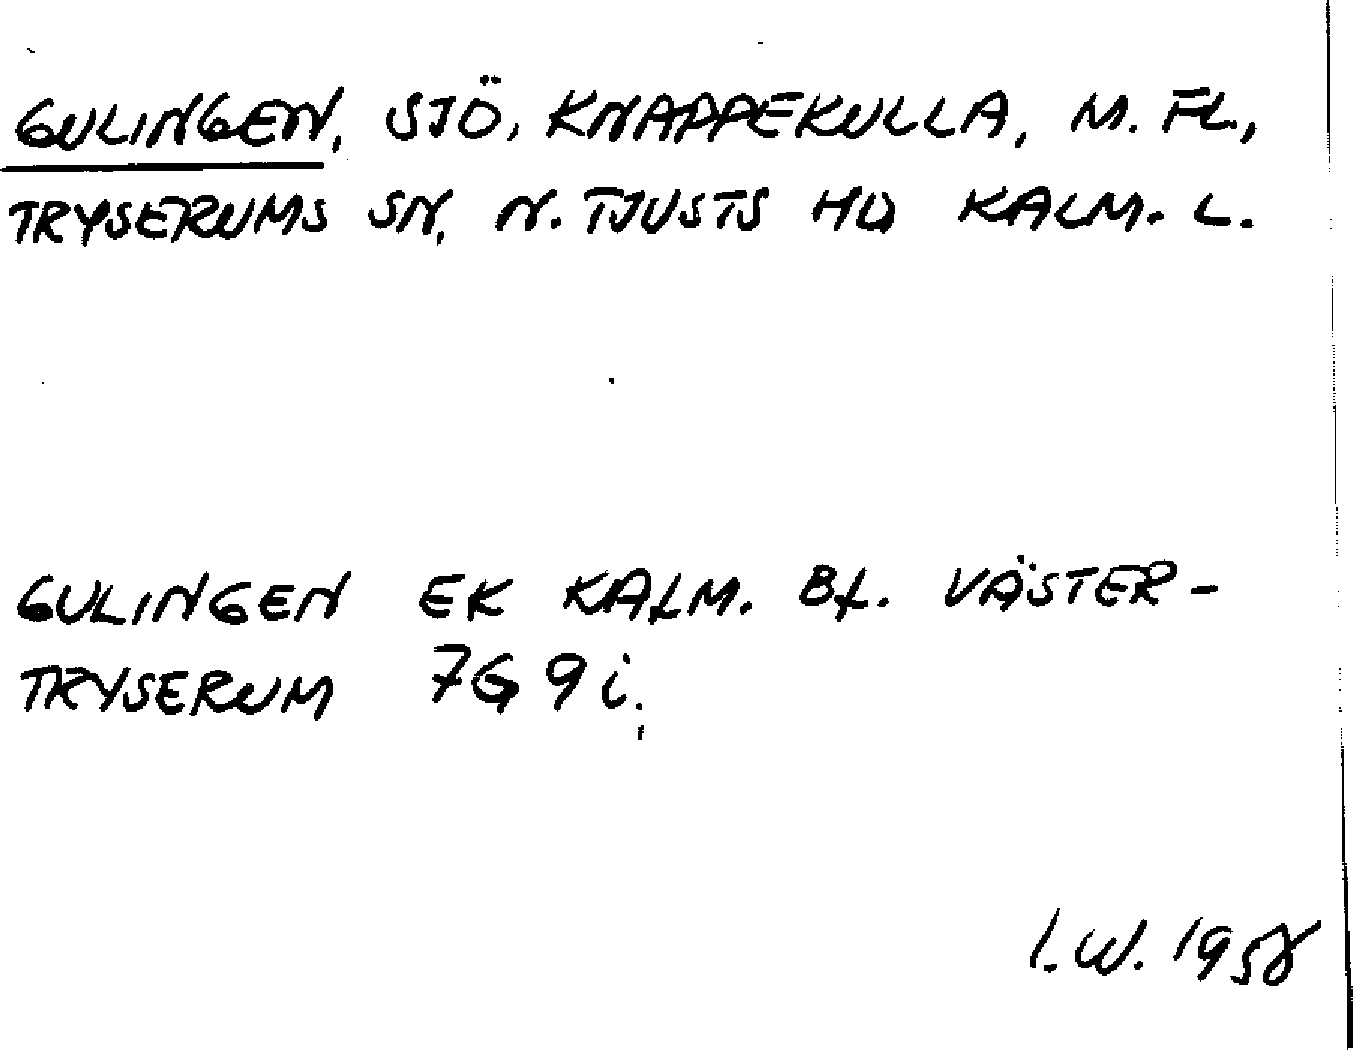 GULINGEN, SJÖ, KNAPPEKULLA, M. FL.,
TRYSERUMS SN, N. TJUSTS HD KALM. L.
GULINGEN EK KALM. BL. VÄSTER-
TRYSERUM 7G 9i.
I.W. 1958